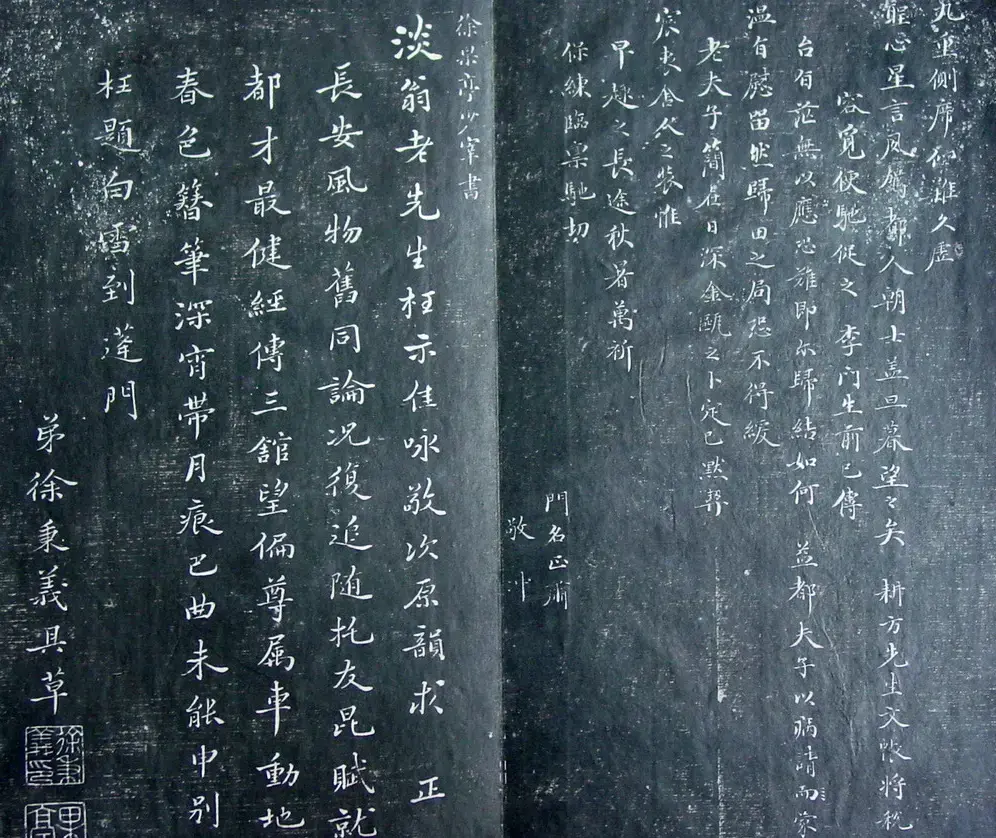 九重側席仰難久虛
聖心星言夙駕都人朝士盖旦暮望々矣 耕方先生文帳將脱
容覓便馳促之 李门生前已傳
台旨茫無以應恐雄即尔歸結如何 益都夫子以病請而家
温旨慰留然歸田之局恐不得緩
老夫子簡在日深金甌之卜定已默契
宸衷舍公之裝惟
早趣之長途秋暑萬祈
保練臨稟馳切
門名正肅
敬冲
徐果亭少宰書
淡翁老先生枉示佳咏敬次原韻求 正
長安風物舊同論况復追随托友昆賦就
都才最健經傳三舘望偏尊属車動地
春色簪筆深宵帶月痕巴曲未能申别
枉題白雪到蓬門
弟徐秉義具草
徐秉義印